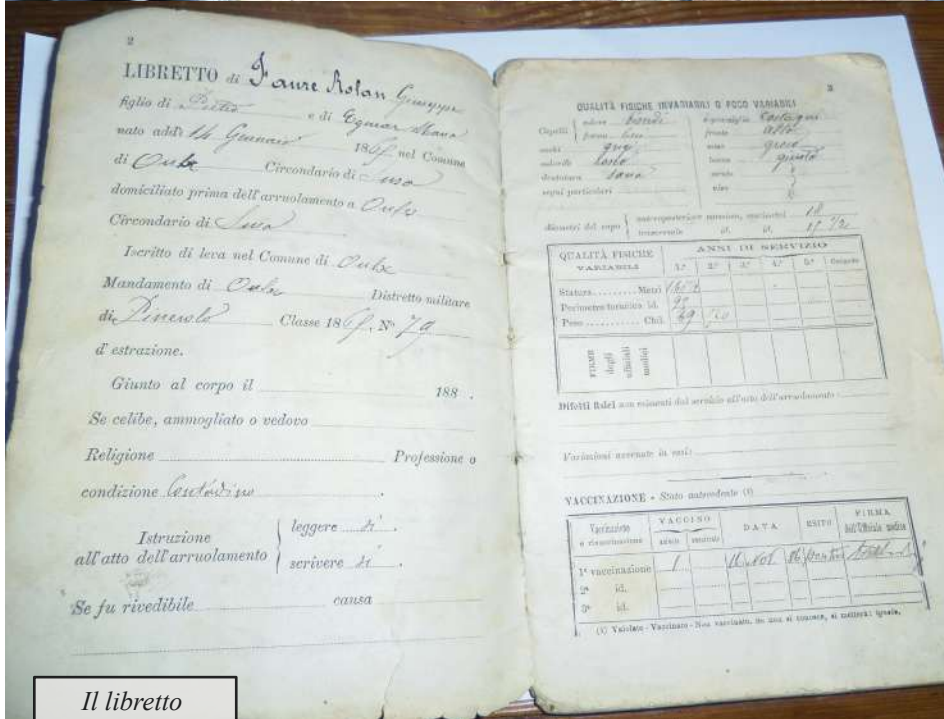 2
LIBRETTO di Faure Rolan Giuseppe
figlio di Pietro e di Eymar Maria
nato addì 14 Gennaio 186 nel Comune
di Oulx Circondario di Susa
domiciliato prima dell'arruolamento a Oulx
Circondario di Susa
Iscritto di leva nel Comune di Oulx
Mandamento di Oulx Distretto militare
di Pinerolo Classe 186 N° 79
d'estrazione.
Giunto al corpo il 188 .
Se celibe, ammogliato o vedovo
Religione Professione o
condizione Contadino .
Istruzione all'atto dell'arruolamento
leggere sì .
scrivere sì .
Se fu rivedibile causa
Il libretto
3
QUALITÀ FISICHE INVARIABILI O POCO VARIABILI
Capelli colore biondi sopracciglia castagni
forma lisci fronte alta
occhi grigi naso greco
colorito roseo bocca giusta
dentatura sana mento
segni particolari viso
diametri del capo antero-posteriore massimo, centimetri 18
trasversale id. id. 15 1/2
QUALITÀ FISICHE VARIABILI ANNI DI SERVIZIO
1.° 2.° 3.° 4.° 5.° Congedo
Statura Metri
Perimetro toracico id.
Peso Chil. 69
FIRME degli ufficiali medici
Difetti fisici non esimenti dal servizio all'atto dell'arruolamento
Variazioni avvenute in essi
VACCINAZIONE - Stato antecedente (1)
Vaccinazione o rivaccinazione VACCINO DATA ESITO FIRMA dell'Ufficiale medico
animale umanizzato
1ª vaccinazione 1 16 Nov 86
2ª id.
3ª id.
(1) Vaiolato - Vaccinato - Non vaccinato, se non si conosce, si metterà: ignoto.